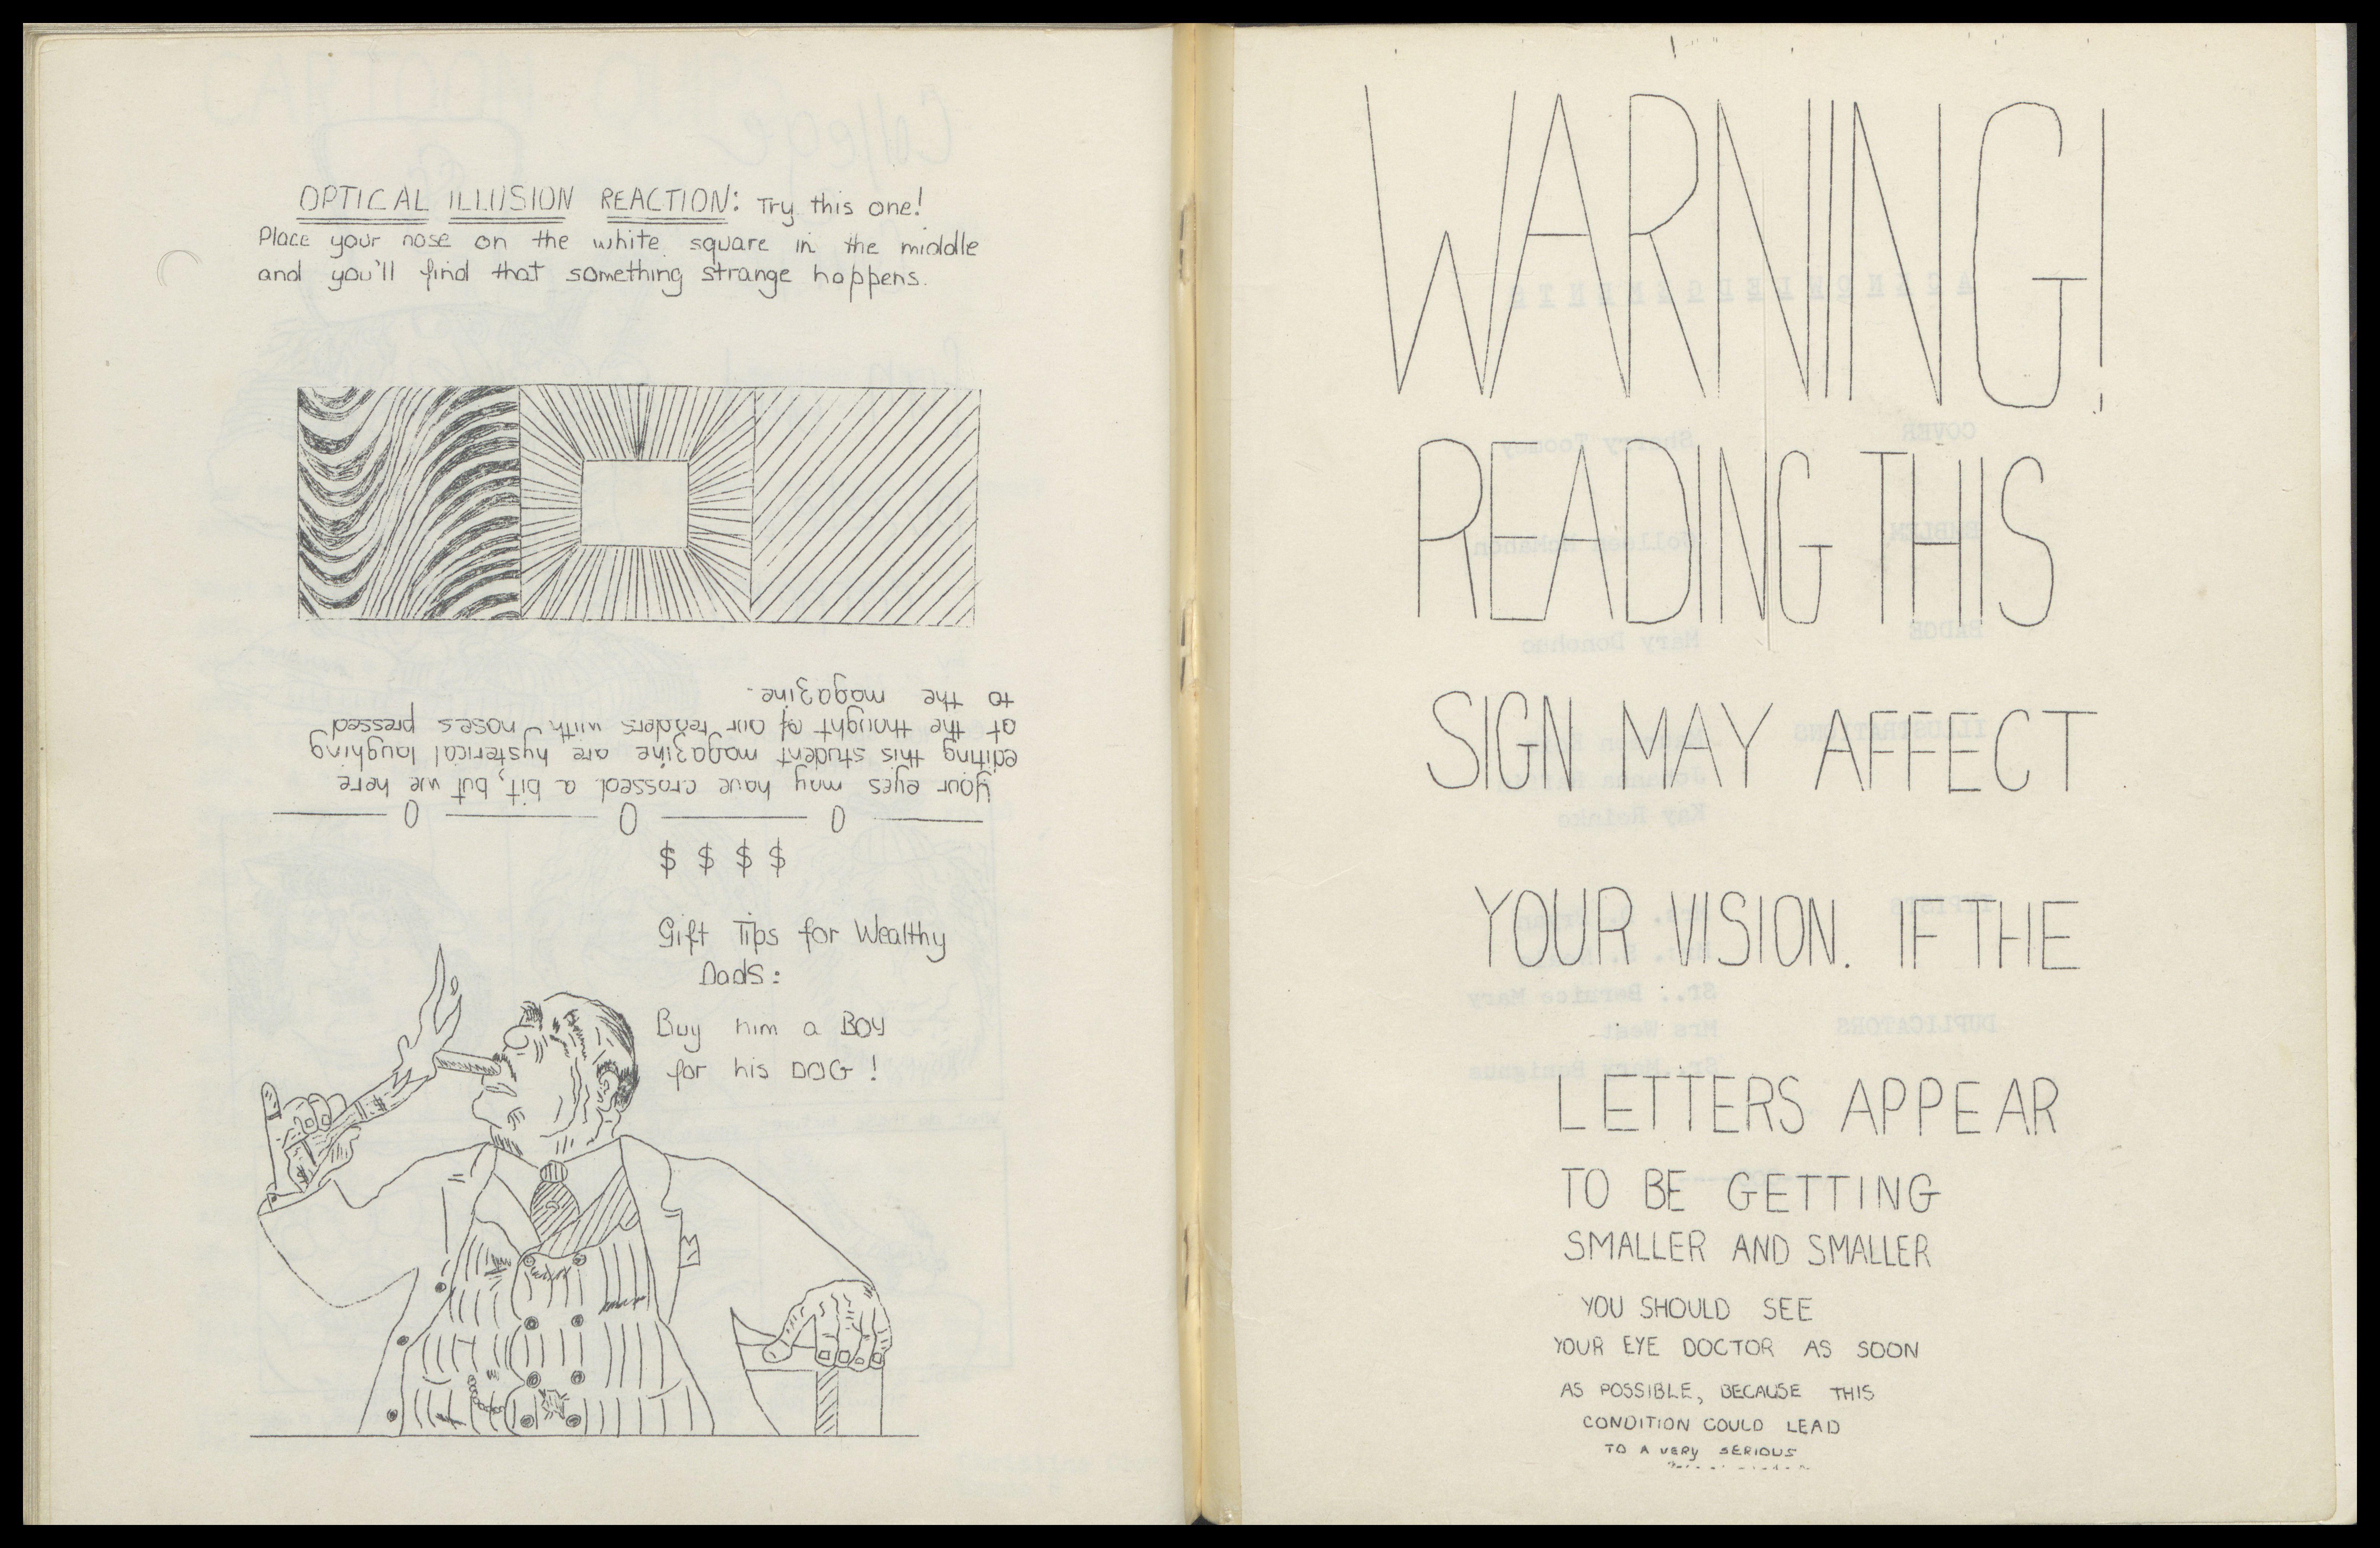 OPTICAL ILLUSION REACTION: Try this one!
Place your nose on the white square in the middle
and you'll find that something strange happens.
your eyes may have crossed a bit, but we here
editing this student magazine are hysterical laughing
at the thought of our readers with noses pressed
to the magazine.
$ $ $ $
Gift Tips for Wealthy
Dads:
Buy him a BOY
for his DOG!
WARNING!
READING THIS
SIGN MAY AFFECT
YOUR VISION. IF THE
LETTERS APPEAR
TO BE GETTING
SMALLER AND SMALLER
YOU SHOULD SEE
YOUR EYE DOCTOR AS SOON
AS POSSIBLE, BECAUSE THIS
CONDITION COULD LEAD
TO A VERY SERIOUS